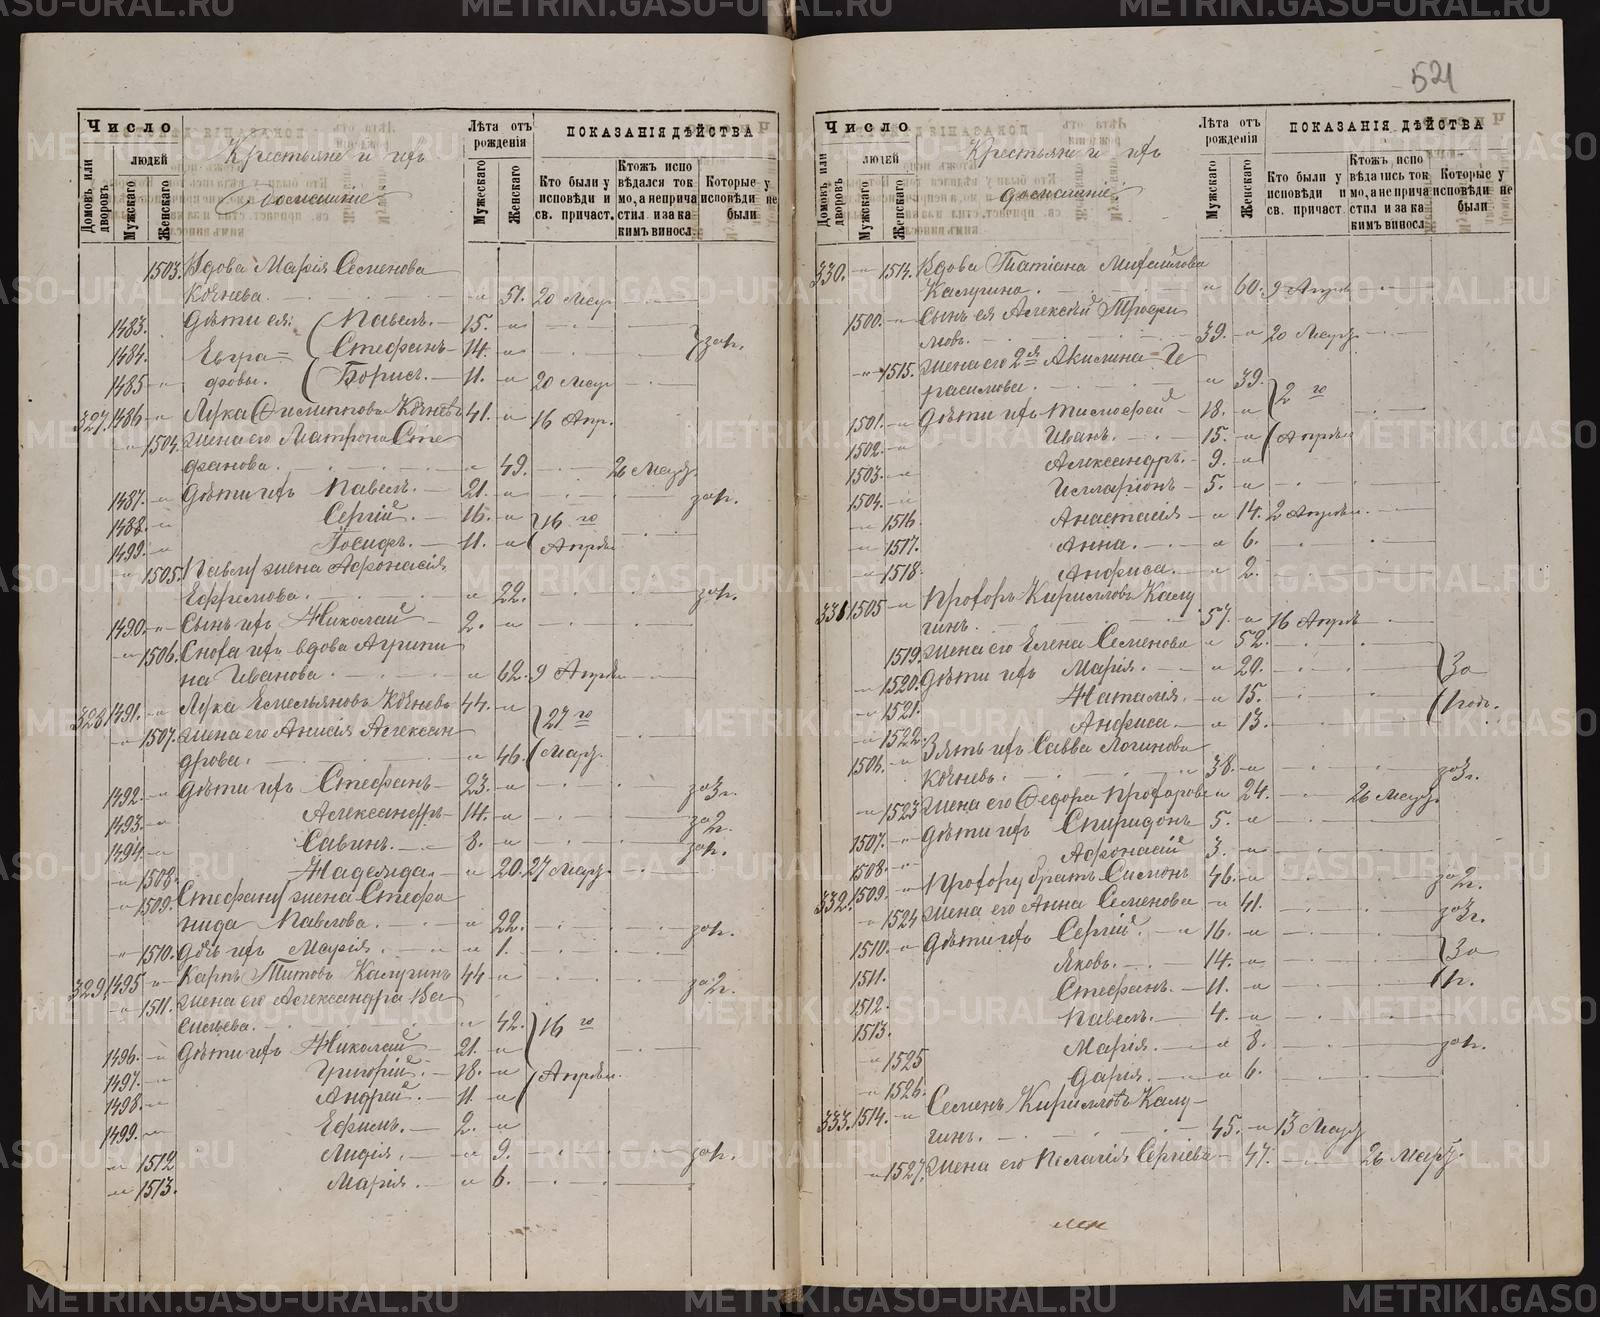 521
Число
людей
Домовъ или дворовъ
Мужскаго
Женскаго
Крестьяне и ихъ
домашніе
Лѣта отъ рожденія
Мужескаго
Женскаго
ПОКАЗАНІЯ ДѢЙСТВА
Кто были у исповѣди и св. причаст.
Ктожъ исповѣдался токмо, а не причастил и за каким винословіемъ
Которые у исповѣди не были
1503. Вдова Марія Семенова
51. 20 Мар.
1483. Дѣти ея: Павелъ. 15.
1484. Евгра= Стефанъ 14. за 1 г.
1485 фовы. Борисъ. 11. 20 Мар
327. 1486 Лука Филипповъ 41. 16 Апр.
1504. жена его Матрона Сте
фанова. 49. 26 Мар.
1487. Дѣти ихъ Павелъ. 21. за 1 г.
1488. Сергій. 16. 16 го
1499. Іосифъ. 11. Апрѣля
1505. Павлу жена Афонасія
Ефремова. 22. за 1 г.
1490. Сынъ ихъ Николай 2.
1506. Сноха ихъ вдова Агрипи
на Иванова. 62. 9 Апрѣля
328 1491. Лука Емельяновъ 44. 27 го
1507. жена его Анисія Алексан
дрова. 46. Мар.
1492. Дѣти ихъ Стефанъ 23. за 3 г.
1493. Александръ 14. за 2 г.
1494. Савинъ. 8. за 1 г.
1508. Надежда. 20. 27 Мар.
1509. Стефану жена Стефа
нида Павлова. 22. за 1 г.
1510. Дочь ихъ Марія. 1.
329 1495 Карпъ Титовъ Калугинъ 44 за 2 г.
1511. жена его Александра Ва
сильева. 42. 16 го
1496. Дѣти ихъ Николай 21.
1497. Григорій. 18. Апрѣля.
1498. Андрей. 11.
1499. Ефимъ. 2.
1512 Лидія. 9. за 1 г.
1513. Марія. 6.
Число
людей
Домовъ или дворовъ
Мужскаго
Женскаго
Крестьяне и ихъ
домашніе
Лѣта отъ рожденія
Мужескаго
Женскаго
ПОКАЗАНІЯ ДѢЙСТВА
Кто были у исповѣди и св. причаст
Ктожъ исповѣдались токмо, а не причастил и за каким винословіемъ
Которые у исповѣди не были
330. 1514. Вдова Татіана Михайлова
Калугина. 60. 9 Апрѣля
1500. Сынъ ея Алексѣй Трофи
мовъ. 39. 20 Мар.
1515. жена его 2я Акилина Ге
расимова. 39. 2 го
1501. Дѣти ихъ Тимофей 18.
1502. Иванъ. 15. Апрѣля
1503. Александръ. 9.
1504. Илларіонъ 5.
1516 Анастасія 14. 2 Апрѣля.
1517. Анна. 6.
1518 Анфиса. 2.
331 1505 Прохоръ Кирилловъ Калу
гинъ. 57. 16 Апрѣля
1519. жена его Елена Семенова 52.
1520. Дѣти ихъ Марія. 20. За
1521. Наталія. 15. 1 годъ.
1522. Анфиса. 13.
1506. Зять ихъ Савва Логинова
38. за 3 г.
1523 жена его Федора Прохорова 24. 26 Мар.
1507. Дѣти ихъ Спиридонъ 5.
1508. Афонасій 3.
332. 1509. Прохору братъ Симонъ 46. за 2 г.
1524 жена его Анна Семенова 41. за 3 г.
1510. Дѣти ихъ Сергій. 16.
1511. Яковъ. 14. За
1512. Стефанъ. 11. 1 г.
1513. Павелъ. 4.
1525 Марія. 8. за 1 г.
1526. Дарія. 6.
333. 1514. Семенъ Кирилловъ Калу-
гинъ. 45. 13 Мар.
1527. жена его Пелагія Сергіева 47. 26 Мар.
METRIKI.GASO-URAL.RU